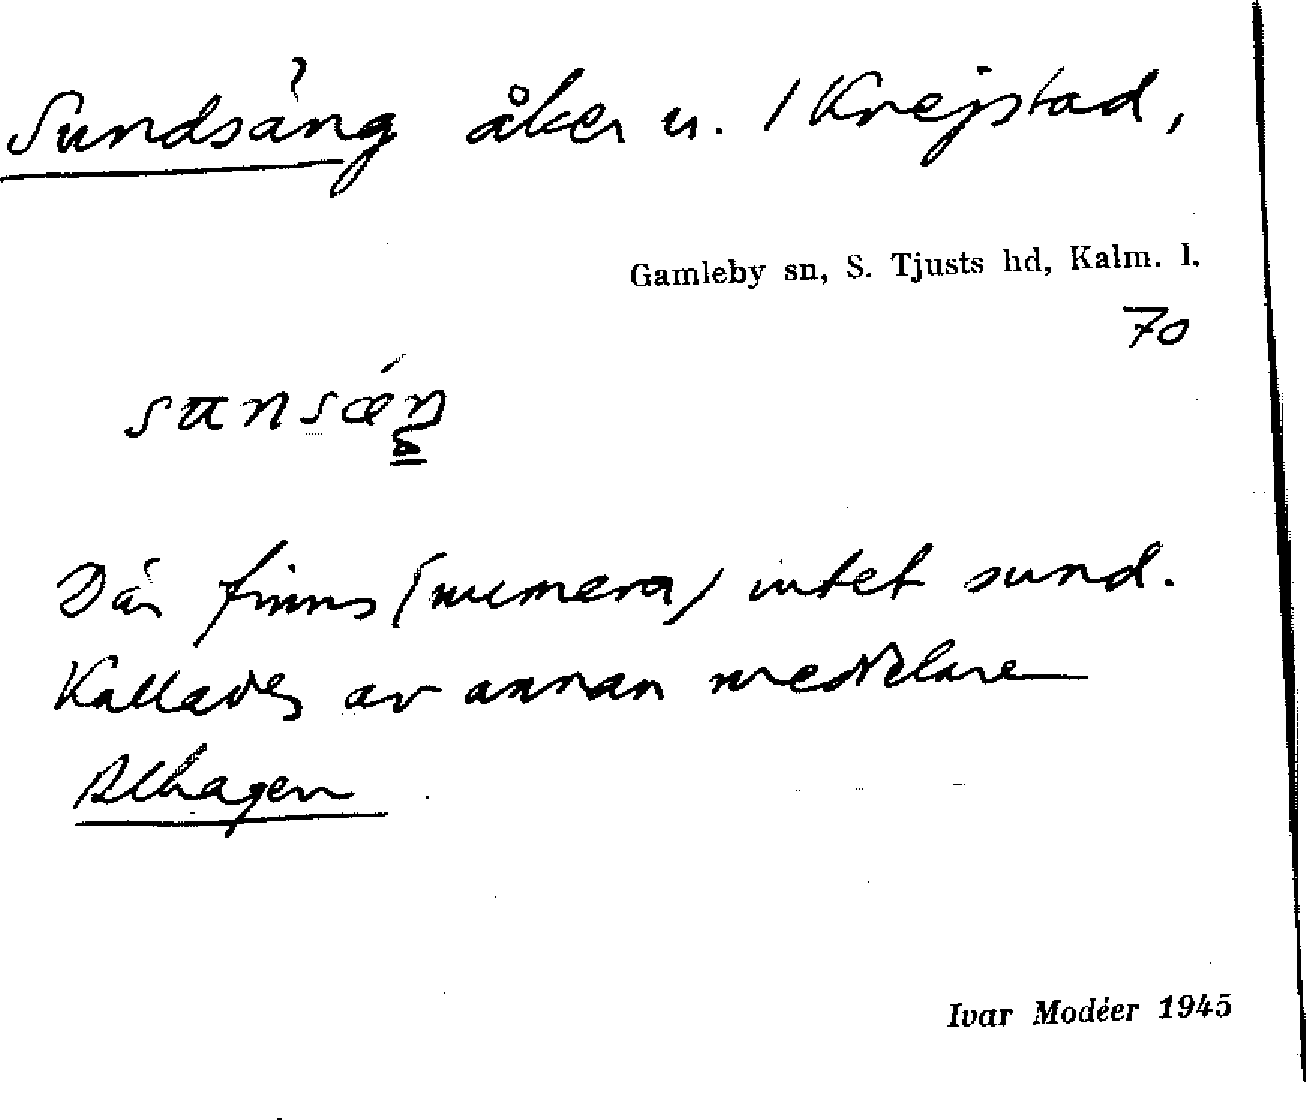 Sundsäng åker u. 1 Krejstad,
Gamleby sn, S. Tjusts hd, Kalm. l.
70
Där finns (numera) intet sund.
Kallades av annan meddelare
Alhagen
Ivar Modéer 1945